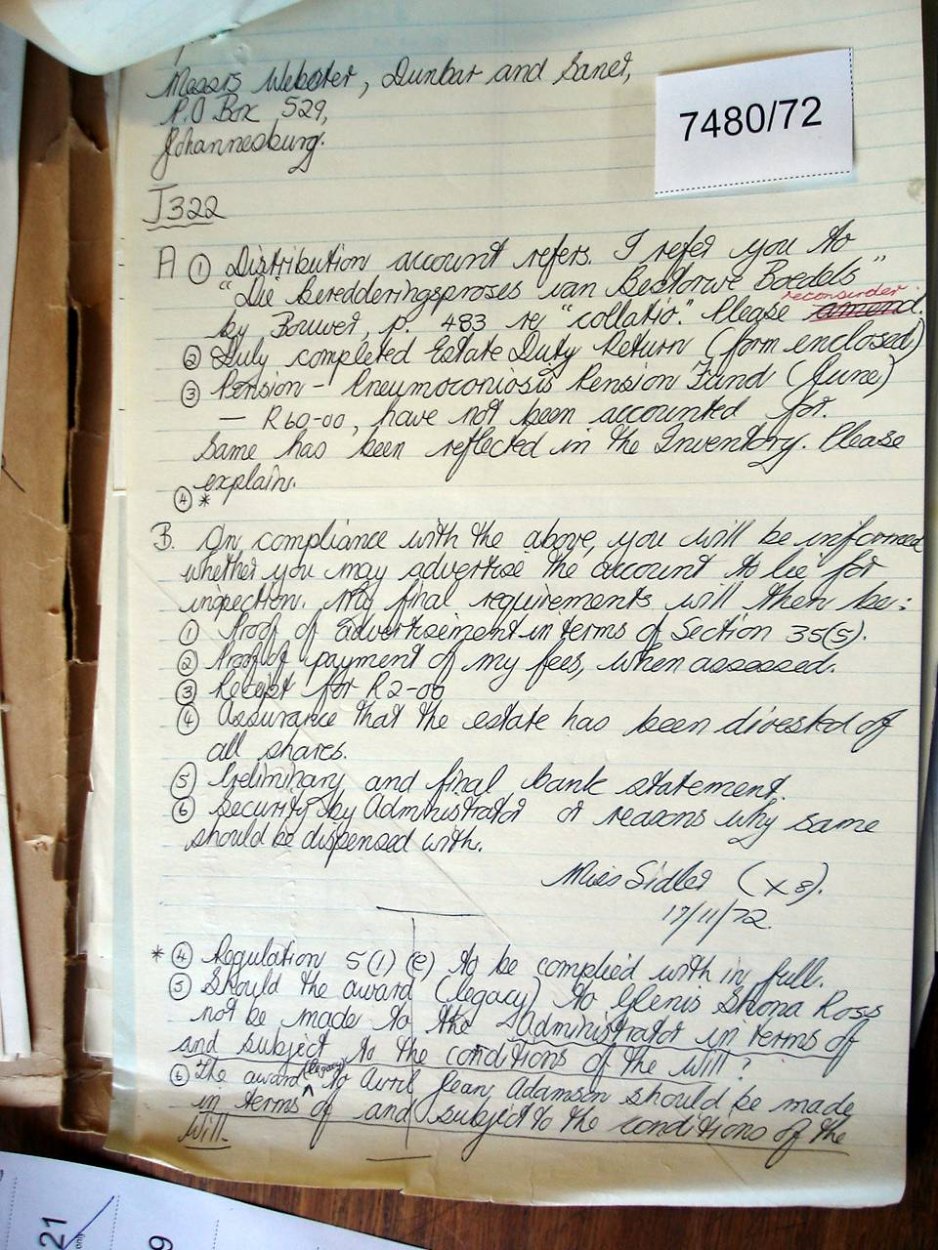 Messrs Webster, Dunbar and Sanet,
P.O Box 529,
Johannesburg.
7480/72
J322
A ① Distribution account refers. I refer you to
"Die beredderingsproses van Bestorwe Boedels"
reconsider
by Bouwer, p. 483 re "collatio." Please amend.
② Duly completed Estate Duty Return (form enclosed)
③ Pension - Pneumoconiosis Pension Fund (June)
— R60-00, have not been accounted for.
Same has been reflected in the Inventory. Please
explain.
④ *
B. On compliance with the above, you will be informed
whether you may advertise the account to lie for
inspection. My final requirements will then be:
① Proof of advertisement in terms of Section 35(5).
② Proof of payment of my fees, when assessed.
③ Receipt for R2-00
④ Assurance that the estate has been divested of
all shares.
⑤ Preliminary and final bank statement.
⑥ Security by Administrator or reasons why same
should be dispensed with.
Miss Sidler (x8).
17/11/72.
* ④ Regulation 5(1) (e) to be complied with in full.
⑤ Should the award (legacy) to Glenis Shona Ross
not be made to the Administrator in terms of
and subject to the conditions of the will?
(legacy)
⑥ The award to Avril Jean Adamson should be made
in terms of and subject to the conditions of the
Will.
21
9